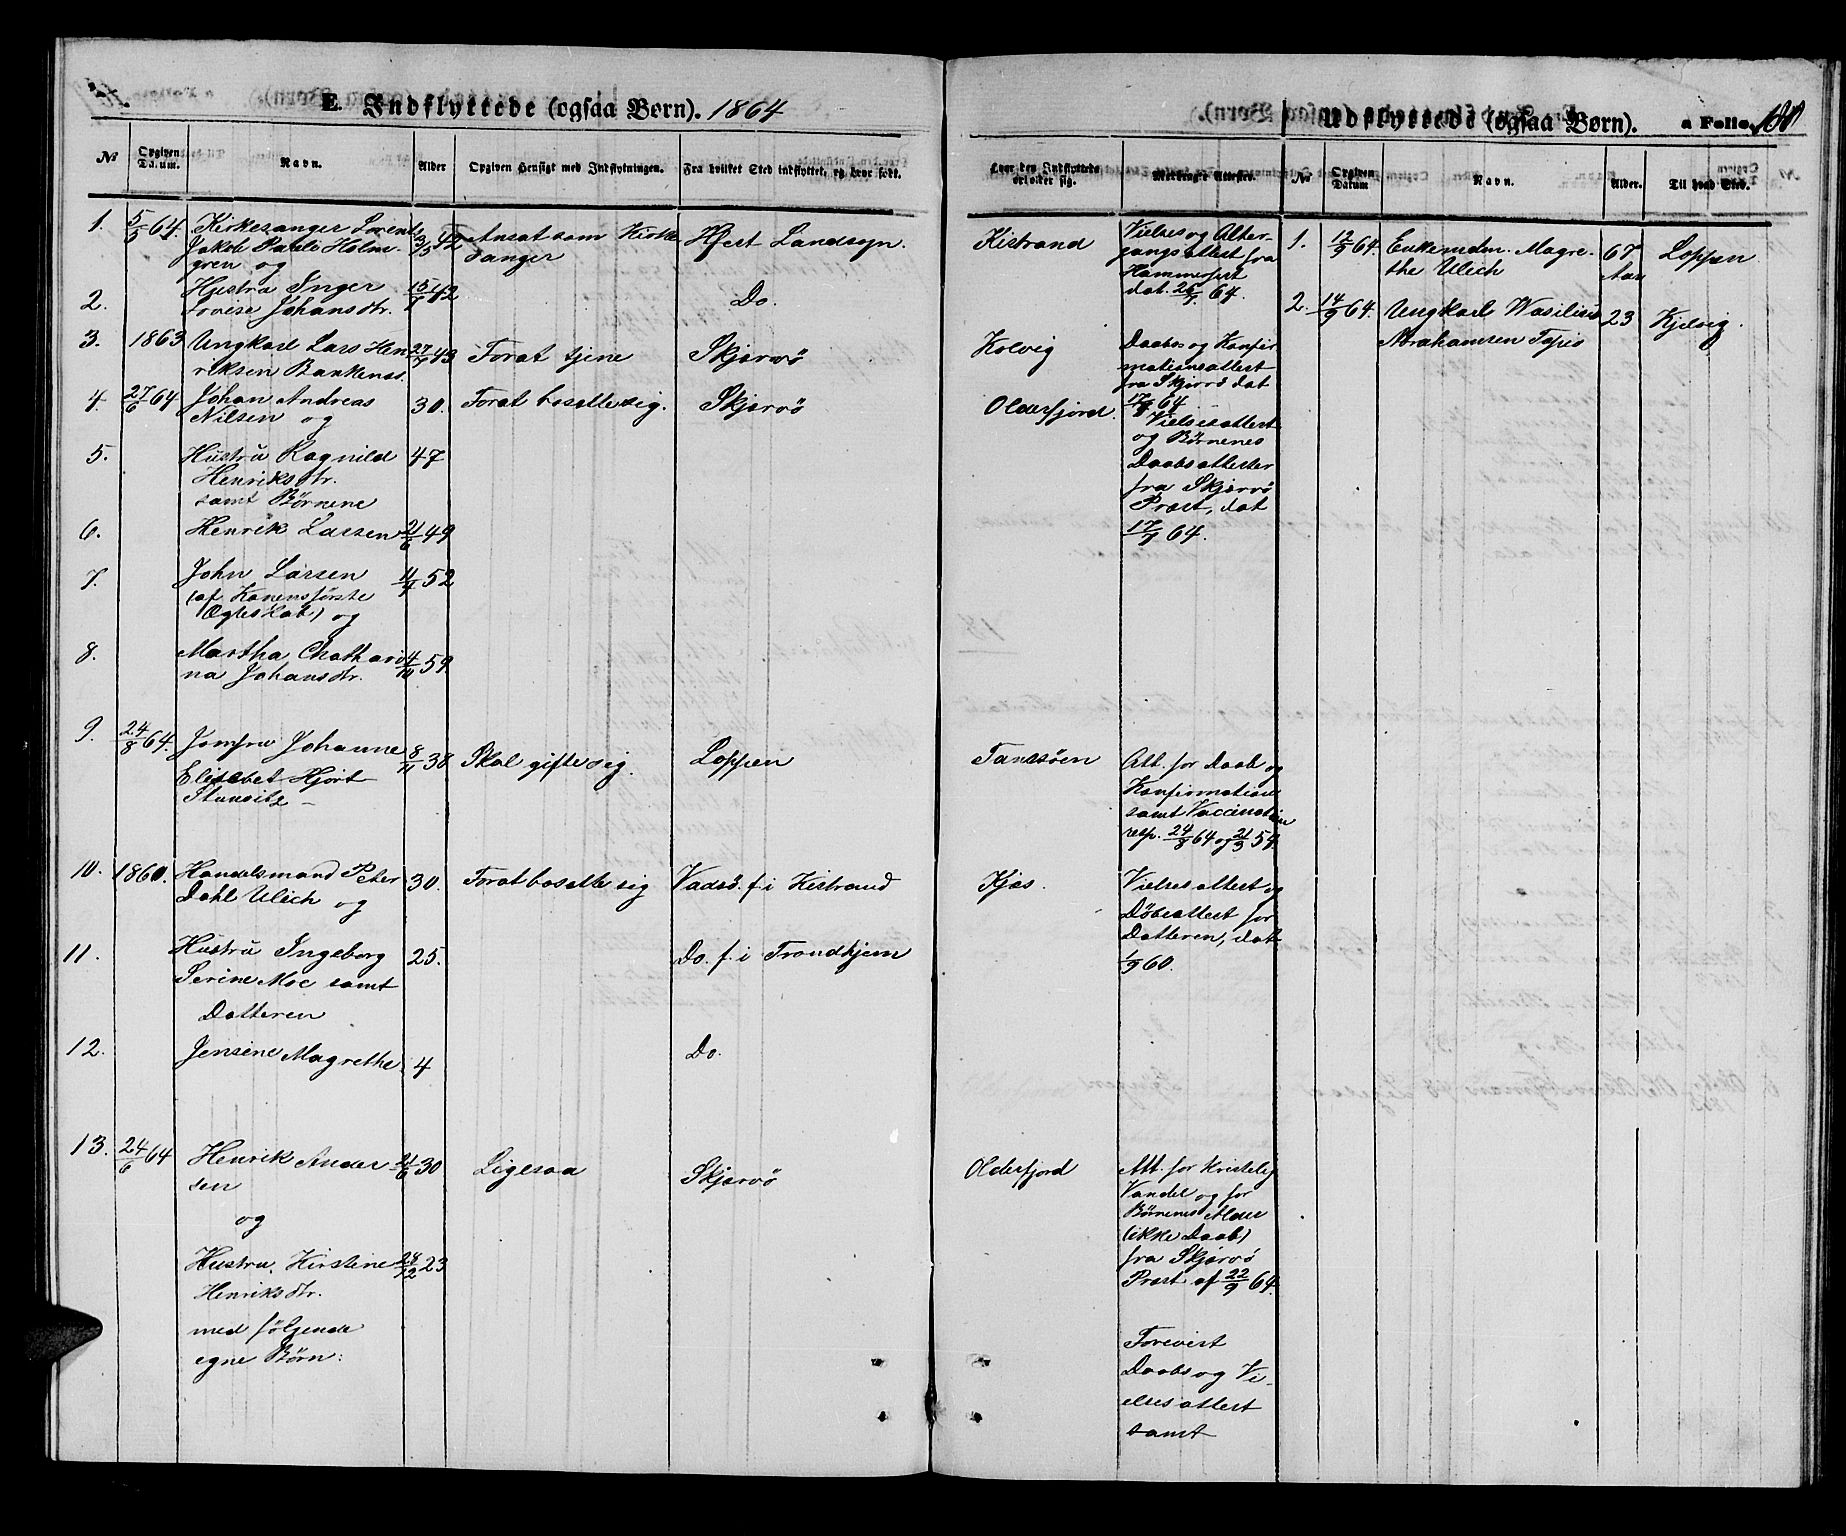 E. Indflyttede (ogsaa Børn). 1864
№ Opgiven Datum. Navn. Alder Opgiven Hensigt med Indflytningen. Fra hvilket Sted indflyttet, og hvor født.
1. 5/5 64. Kirkesanger Lorents 42 Ansat som Kirke Hfest Landsogn.
Jakob Pauli Holm- sanger
gren og
2. Hustru Inger 15/1 42 Do.
Lovise Johansdtr.
3. 1863 Ungkarl Lars Hen 43 For at tjene Skjærvö
riksen Bankenæs.
4. 27/6 64 Johan Andreas 30. For at bosætte sig. Skjervö
Nilsen og
5. Hustru Ragnild 47
Henriksdtr.
samt Børnene
6. Henrik Larsen 21/6 49
7. John Larsen 52
(af Konens første
Ægteskab) og
8. Martha Chathari 59
na Johansdtr.
9. 24/8 64. Jomfru Johanne 8/11 38 Skal gifte sig. Loppen
Elisebet Hjort
10. 1860. Handelsmand Peter 30. For at bosætte sig Vadsö. f. i Kistrand
Dahl Ulich og
11. Hustru Ingeborg 25. Do. f. i Trondhjem
Serine Moe samt
Datteren
12. Jensine Magrethe 4 Do.
13. 24/6 64 Henrik Ander 30 Ligesaa Skjervö
sen
og
Hustru Kirstine 28/12 23
Henriksdtr.
med følgende
egne Børn:
Hvor den Indflyttede opholder sig. Medbragte Attester.
Kistrand Vielses og Alter-
gangsattest fra
Hammerfest
dat. 26/4 64.
Kolvig Daabs og Konfir
mationsattest
fra Skjervö dat
Olderfjord. 17/9 64
Vielsesattest
og Børnenes
Daabsattester
fra Skjærvö
Præst, dat
17/9 64.
Tanesøen Att. for Daab og
Konfirmation
samt Vaccination
resp. 24/8 64 og 21/3 54
Kjæs. Vielsesattest og
Döbeattest for
Datteren, dat
1/9 60.
Olderfjord Att. for kristelig
Vandel og for
Børnenes Alder
(ikke Daab)
fra Skjervö
Præst af 22/9 64.
Forevist
Daabs og Vi-
elsesattest
samt
Udflyttede (ogsaa Børn). a Folio.
№ Opgiven Datum Navn. Alder. Til hvad Sted.
1. 12/9 64. Enkemadm. Magre- 67 Loppen
the Ulich Aar
2. 14/9 64. Ungkarl Wasilius 23 Kjelvig.
Abrahamsen